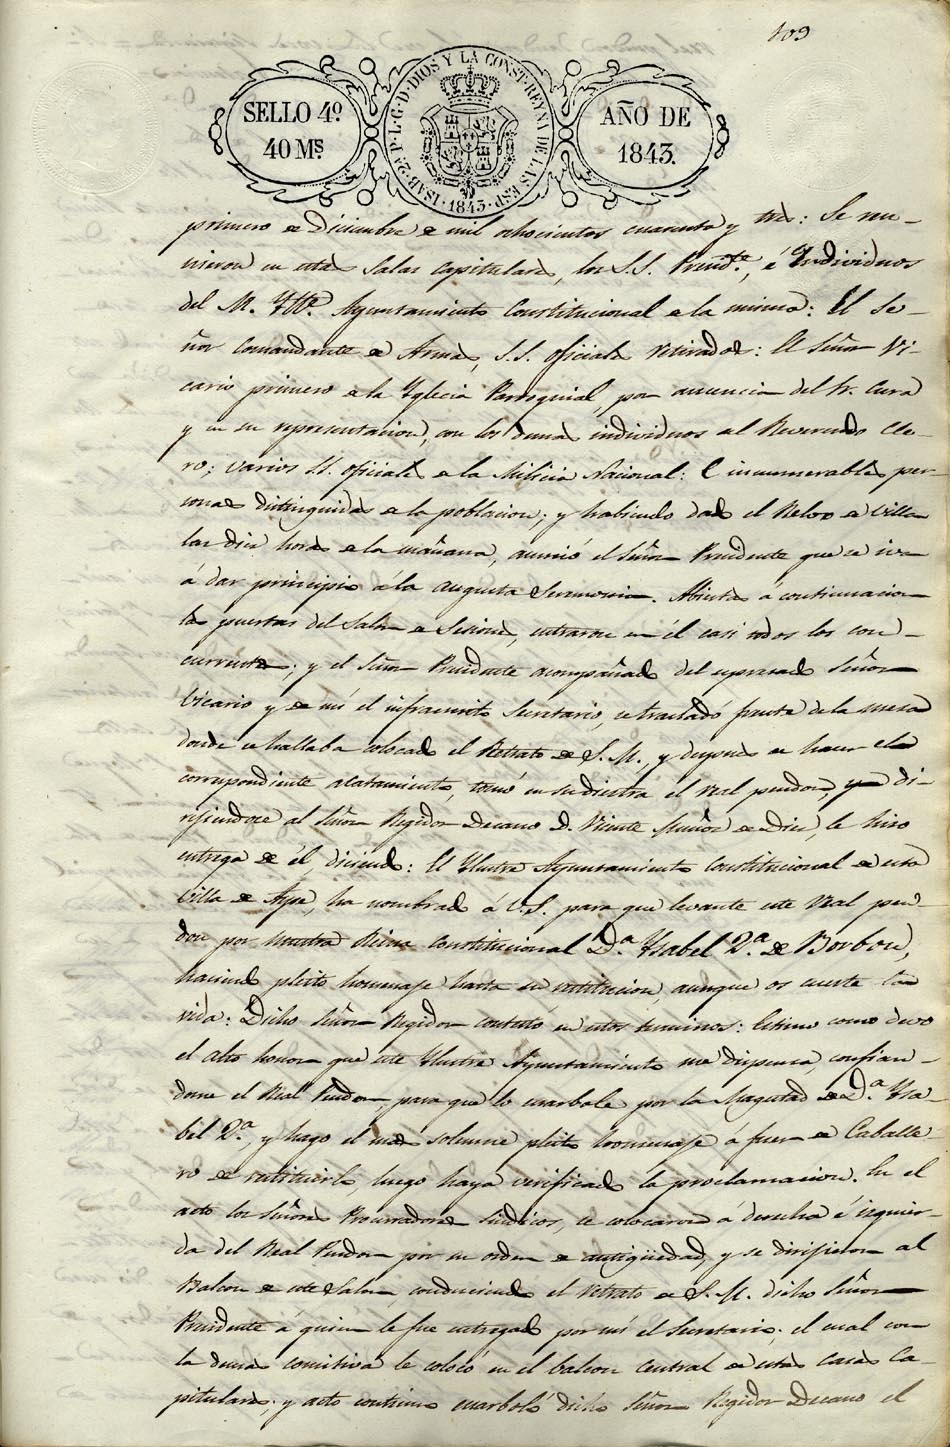 109
SELLO 4º.
40 Ms.
ISAB. 2ª. P. L. G. D. DIOS Y LA CONST. REYNA DE LAS ESP.
1843
AÑO DE
1843.
primero de diciembre de mil ochocientos cuarenta y tres: Se reu-
nieron en estas Salas Capitulares, los S.S. Presidte., é Individuos
del M. Ylte. Ayuntamiento Constitucional de la misma: El Se-
ñor Comandante de Armas, S.S. oficiales retirados: El Señor Vi-
cario primero de la Yglecia Parroquial, por ausencia del Sr. Cura
y en su representacion, con los demas individuos del Reverendo Cle-
ro; varios SS. oficiales de la Milicia Nacional: E innumerables per-
sonas distinguidas de la poblacion; y habiendo dado el Relox de Villa
las diez horas de la mañana, anunció el Señor Presidente que se iva
á dar principio á la augusta Seremonia. Abiertas á continuacion
las puertas del Salon de Sesiones, entraron en él casi todos los con-
currentes; y el Señor Presidente acompañado del espresado Señor
Vicario y de mí el infraescrito Secretario, se trasladó frente de la mesa
donde se hallaba colocado el Retrato de S. M., y despues de hacer el
correspondiente acatamiento, tomó en su diestra el real pendon, y di-
rijiendose al Señor Regidor Decano D. Vicente Muñoz de Diez, le hizo
entrega de él, diciendo: El Ylustre Ayuntamiento Constitucional de esta
Villa de Aspe, ha nombrado á V.S. para que levante este Real pen-
don por nuestra Reina Constitucional Dª. Ysabel 2ª. de Borbon,
haciendo pleito homenaje hasta su restitucion, aunque os cueste la
vida: Dicho Señor Regidor contestó en estos terminos: Estimo como devo
el alto honor que este Ylustre Ayuntamiento me dispensa, confian-
dome el Real Pendon, para que lo enarbole por la Magestad de Dª. Ysa-
bel 2ª. y hago el mas solemne pleito homenaje á fuer de Caballe-
ro de restituirlo, luego haya verificado la proclamacion. En el
acto los Señores Procuradores Sindicos, se colocaron á derecha é izquier-
da del Real Pendon por su orden de antigüedad, y se dirijieron al
Balcon de este Salon, conduciendo el retrato de S. M. dicho Señor
Presidente á quien le fue entregado por mí el Secretario; el cual con
la demas comitiva le coloco en el balcon central de estas Casas Ca-
pitulares; y acto continuo enarboló dicho Señor Regidor Decano el